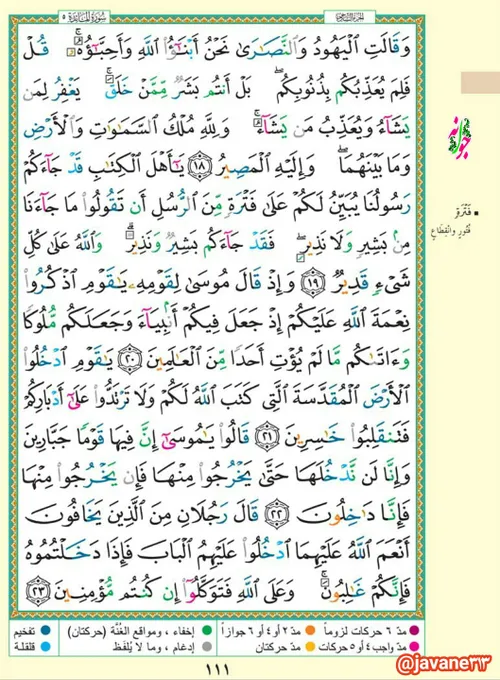 الجزء السادس
سورة المائدة ٥
وَقَالَتِ ٱلۡيَهُودُ وَٱلنَّصَٰرَىٰ نَحۡنُ أَبۡنَٰٓؤُاْ ٱللَّهِ وَأَحِبَّٰٓؤُهُۥۚ قُلۡ
فَلِمَ يُعَذِّبُكُم بِذُنُوبِكُمۖ بَلۡ أَنتُم بَشَرٞ مِّمَّنۡ خَلَقَۚ يَغۡفِرُ لِمَن
يَشَآءُ وَيُعَذِّبُ مَن يَشَآءُۚ وَلِلَّهِ مُلۡكُ ٱلسَّمَٰوَٰتِ وَٱلۡأَرۡضِ
وَمَا بَيۡنَهُمَاۖ وَإِلَيۡهِ ٱلۡمَصِيرُ ١٨ يَٰٓأَهۡلَ ٱلۡكِتَٰبِ قَدۡ جَآءَكُمۡ
رَسُولُنَا يُبَيِّنُ لَكُمۡ عَلَىٰ فَتۡرَةٖ مِّنَ ٱلرُّسُلِ أَن تَقُولُواْ مَا جَآءَنَا
مِنۢ بَشِيرٖ وَلَا نَذِيرٖۖ فَقَدۡ جَآءَكُم بَشِيرٞ وَنَذِيرٞۗ وَٱللَّهُ عَلَىٰ كُلِّ
شَيۡءٖ قَدِيرٞ ١٩ وَإِذۡ قَالَ مُوسَىٰ لِقَوۡمِهِۦ يَٰقَوۡمِ ٱذۡكُرُواْ
نِعۡمَةَ ٱللَّهِ عَلَيۡكُمۡ إِذۡ جَعَلَ فِيكُمۡ أَنۢبِيَآءَ وَجَعَلَكُم مُّلُوكٗا
وَءَاتَىٰكُم مَّا لَمۡ يُؤۡتِ أَحَدٗا مِّنَ ٱلۡعَٰلَمِينَ ٢٠ يَٰقَوۡمِ ٱدۡخُلُواْ
ٱلۡأَرۡضَ ٱلۡمُقَدَّسَةَ ٱلَّتِي كَتَبَ ٱللَّهُ لَكُمۡ وَلَا تَرۡتَدُّواْ عَلَىٰٓ أَدۡبَارِكُمۡ
فَتَنقَلِبُواْ خَٰسِرِينَ ٢١ قَالُواْ يَٰمُوسَىٰٓ إِنَّ فِيهَا قَوۡمٗا جَبَّارِينَ
وَإِنَّا لَن نَّدۡخُلَهَا حَتَّىٰ يَخۡرُجُواْ مِنۡهَا فَإِن يَخۡرُجُواْ مِنۡهَا
فَإِنَّا دَٰخِلُونَ ٢٢ قَالَ رَجُلَانِ مِنَ ٱلَّذِينَ يَخَافُونَ
أَنۡعَمَ ٱللَّهُ عَلَيۡهِمَا ٱدۡخُلُواْ عَلَيۡهِمُ ٱلۡبَابَ فَإِذَا دَخَلۡتُمُوهُ
فَإِنَّكُمۡ غَٰلِبُونَۚ وَعَلَى ٱللَّهِ فَتَوَكَّلُوٓاْ إِن كُنتُم مُّؤۡمِنِينَ ٢٣
فَتْرَةٍ
فُتُورٍ وانْقِطَاعٍ
مدّ ٦ حركات لزوماً مدّ ٢ أو ٤ أو ٦ جوازاً إخفاء ، ومواقع الغُنَّة (حركتان) تفخيم
مدّ واجب ٤ أو ٥ حركات مدّ حركتان إدغام ، وما لا يُلفَظ قلقلة
١١١
@javane٢٣